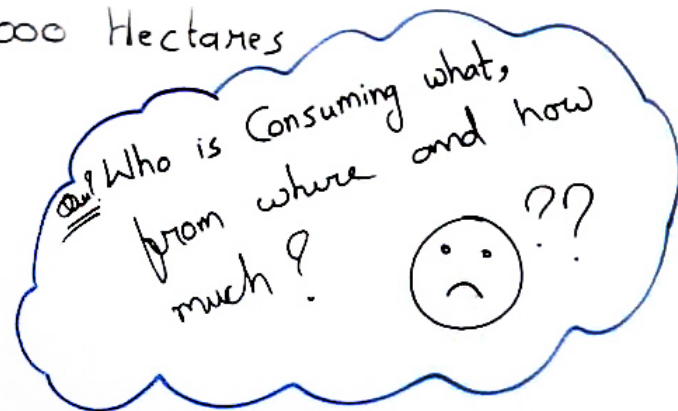 000 Hectares
Who is Consuming what,
from where and how
much? ??